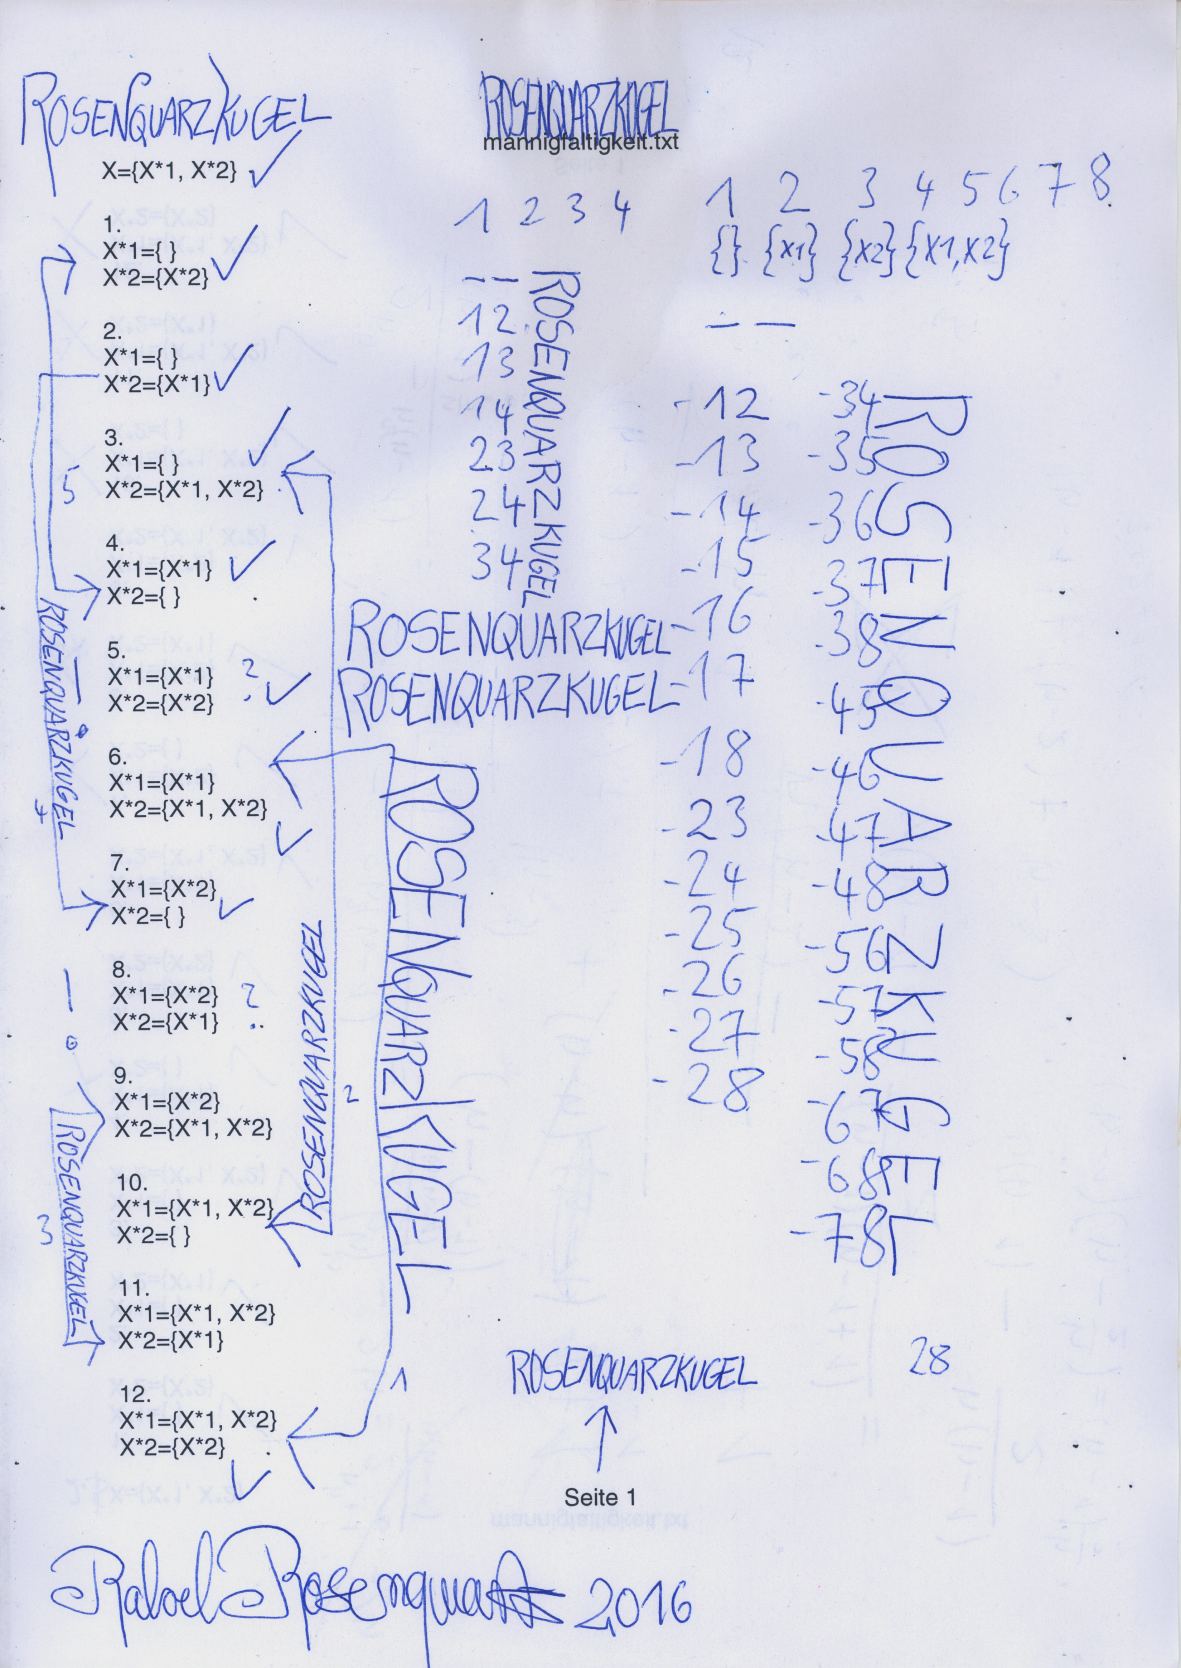 ROSENQUARZKUGEL
ROSENQUARZKUGEL
mannigfaltigkeit.txt
X={X*1, X*2}
1.
X*1={ }
X*2={X*2}
2.
X*1={ }
X*2={X*1}
3.
X*1={ }
X*2={X*1, X*2}
4.
X*1={X*1}
X*2={ }
5.
X*1={X*1} ?
X*2={X*2}
6.
X*1={X*1}
X*2={X*1, X*2}
7.
X*1={X*2}
X*2={ }
8.
X*1={X*2} ?
X*2={X*1}
9.
X*1={X*2}
X*2={X*1, X*2}
10.
X*1={X*1, X*2}
X*2={ }
11.
X*1={X*1, X*2}
X*2={X*1}
12.
X*1={X*1, X*2}
X*2={X*2}
5
ROSENQUARZKUGEL
4
3
ROSENQUARZKUGEL
ROSENQUARZKUGEL
2
ROSENQUARZKUGEL
1
1 2 3 4
--
12
13
14
23
24
34
ROSENQUARZKUGEL
ROSENQUARZKUGEL
ROSENQUARZKUGEL
1 2 3 4 5 6 7 8
{} {x1} {x2} {x1,x2}
--
-12
-13
-14
-15
-16
-17
-18
-23
-24
-25
-26
-27
-28
-34
-35
-36
-37
-38
-45
-46
-47
-48
-56
-57
-58
-67
-68
-78
ROSENQUARZKUGEL
28
ROSENQUARZKUGEL
Seite 1
Rafael Rosenquartz 2016